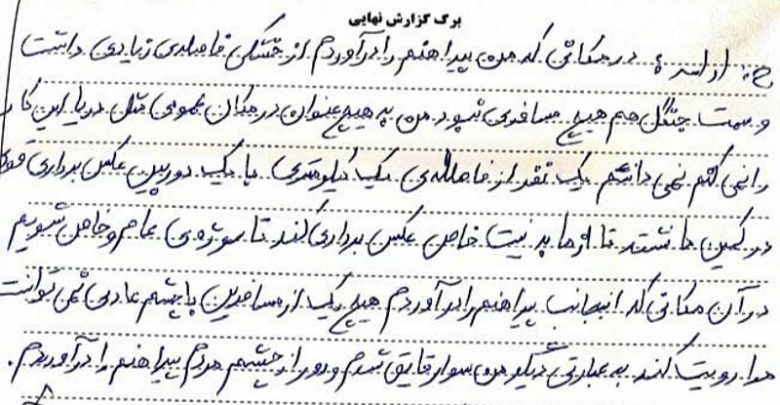 برگ گزارش نهایی
ج: ادامه: در مکانی که من پیراهنم را درآوردم از خشکی فاصله‌ی زیادی داشت
و سمت جنگل هم هیچ مسافری نبود من به هیچ عنوان در مکان عمومی مثل دریا این کار
را نمی کنم نمی دانستم یک نفر از فاصله‌ی یک کیلومتری با یک دوربین عکس برداری قوی
در کمین ما نشسته تا از ما به نیت خاص عکس برداری کند تا سوژه‌ی عام و خاص شویم
در آن مکانی که اینجانب پیراهنم را درآوردم هیچ یک از مسافرین با چشم عادی نمی توانست
مرا رویت کند به عبارتی دیگر من سوار قایق شدم و دور از چشم مردم پیراهنم را درآوردم.